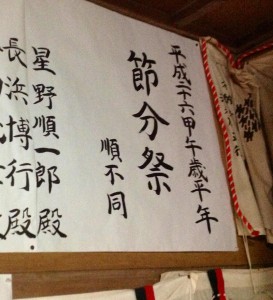 平成二十六甲午歳平年
節分祭
順不同
星野順一郎殿
長浜博行殿